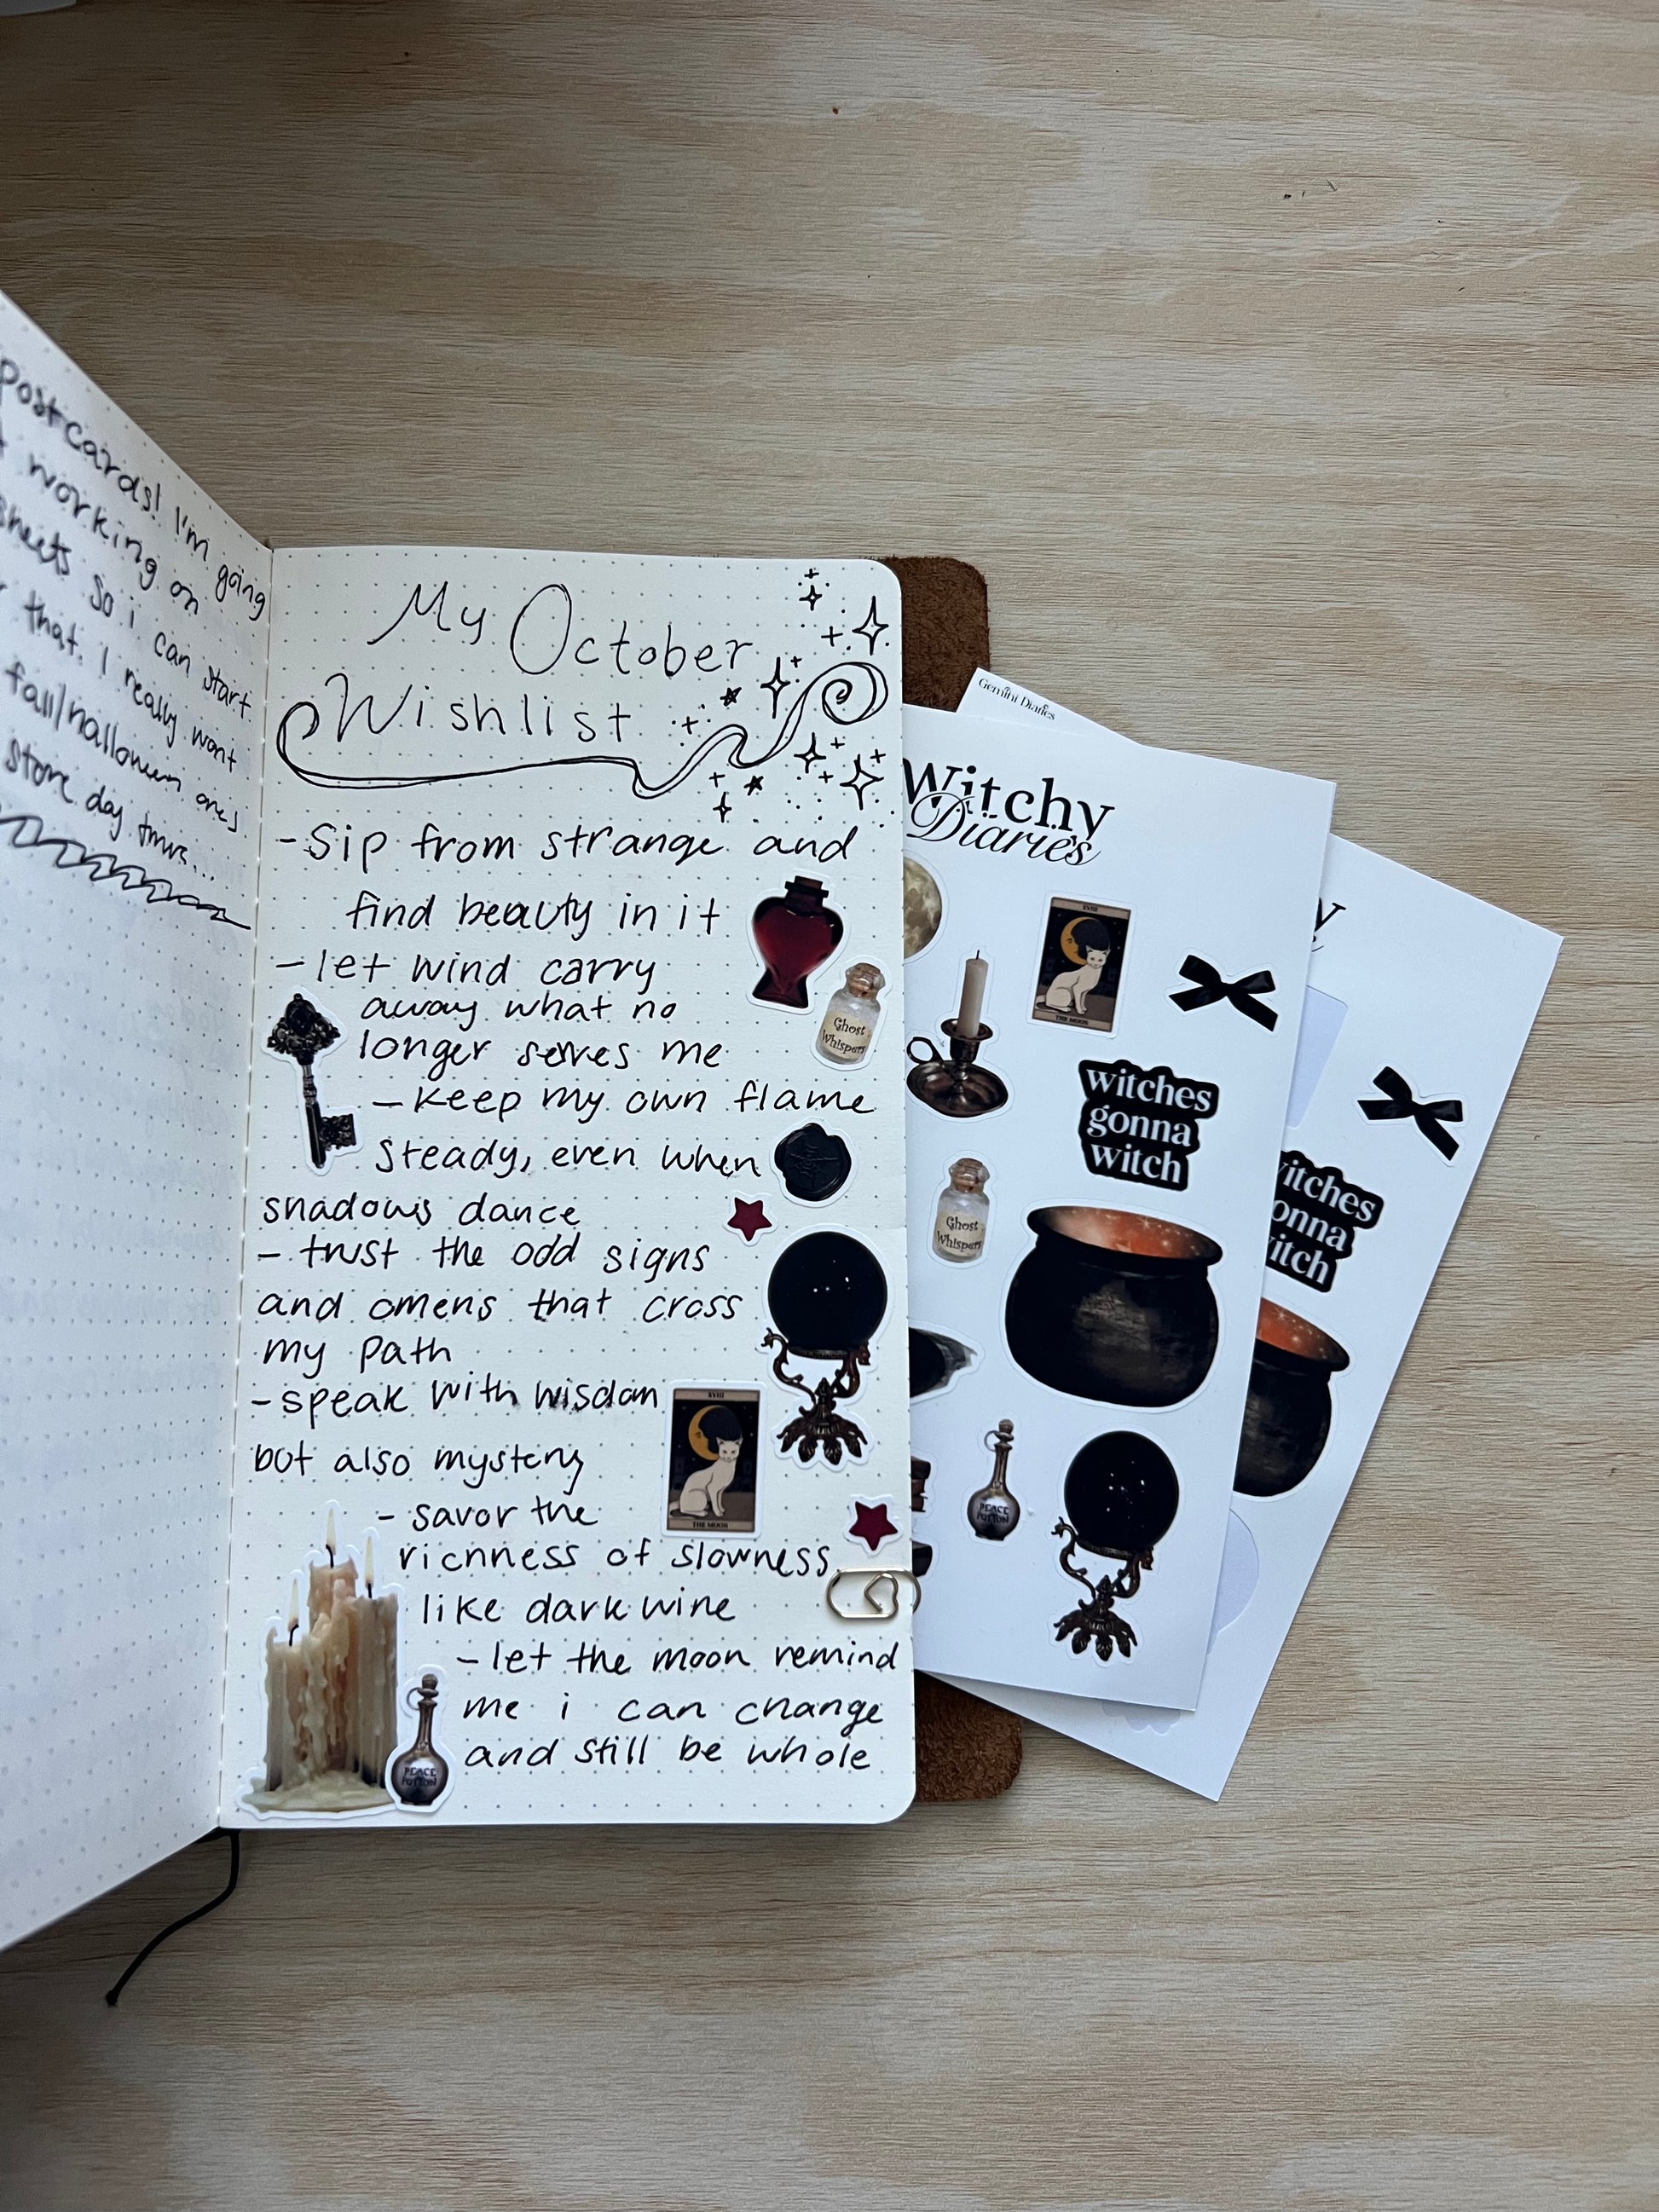 postcards! I'm going
working on
sheets so i can start
that. I really want
fall/halloween ones
store day
My October
Wishlist
- Sip from strange and
find beauty in it
- let wind carry
away what no
longer serves me
- keep my own flame
steady, even when
shadows dance
- trust the odd signs
and omens that cross
my path
- speak with wisdom
but also mystery
- savor the
richness of slowness
like dark wine
- let the moon remind
me i can change
and still be whole
Ghost
Whispers
XVIII
THE MOON
PEACE
POTION
Gemini Diaries
Witchy
Diaries
XVIII
THE MOON
witches
gonna
witch
Ghost
Whispers
PEACE
POTION
y
witches
onna
itch